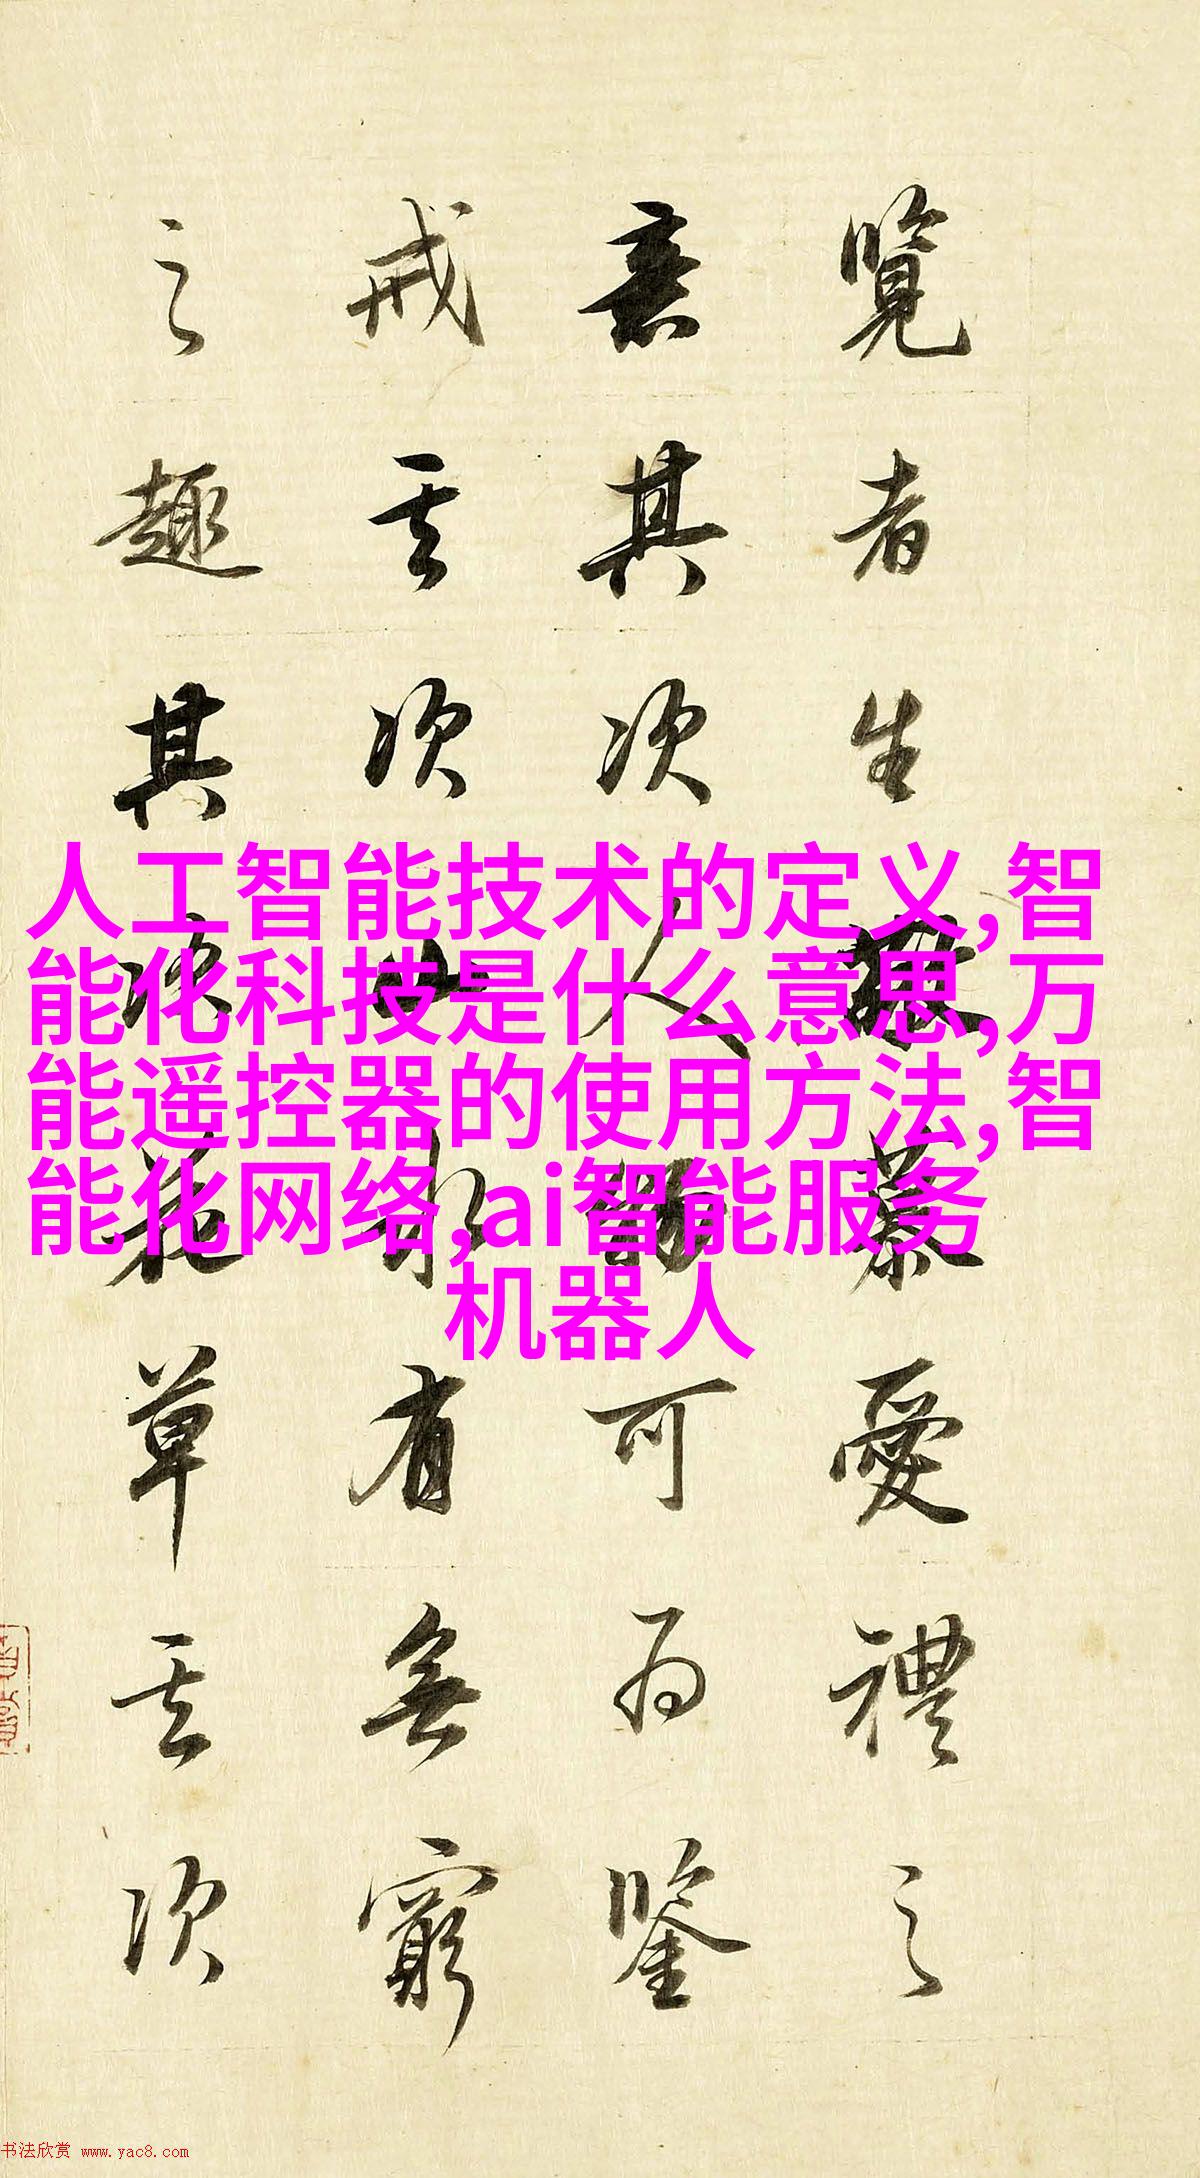 覽者生慕愛禮之
意其次人物可為鑒
戒其次山水有無窮
之趣其次花草其次
人工智能技术的定义,智
能化科技是什么意思,万
能遥控器的使用方法,智
能化网络,ai智能服务
机器人
书法欣赏 www.yac8.com